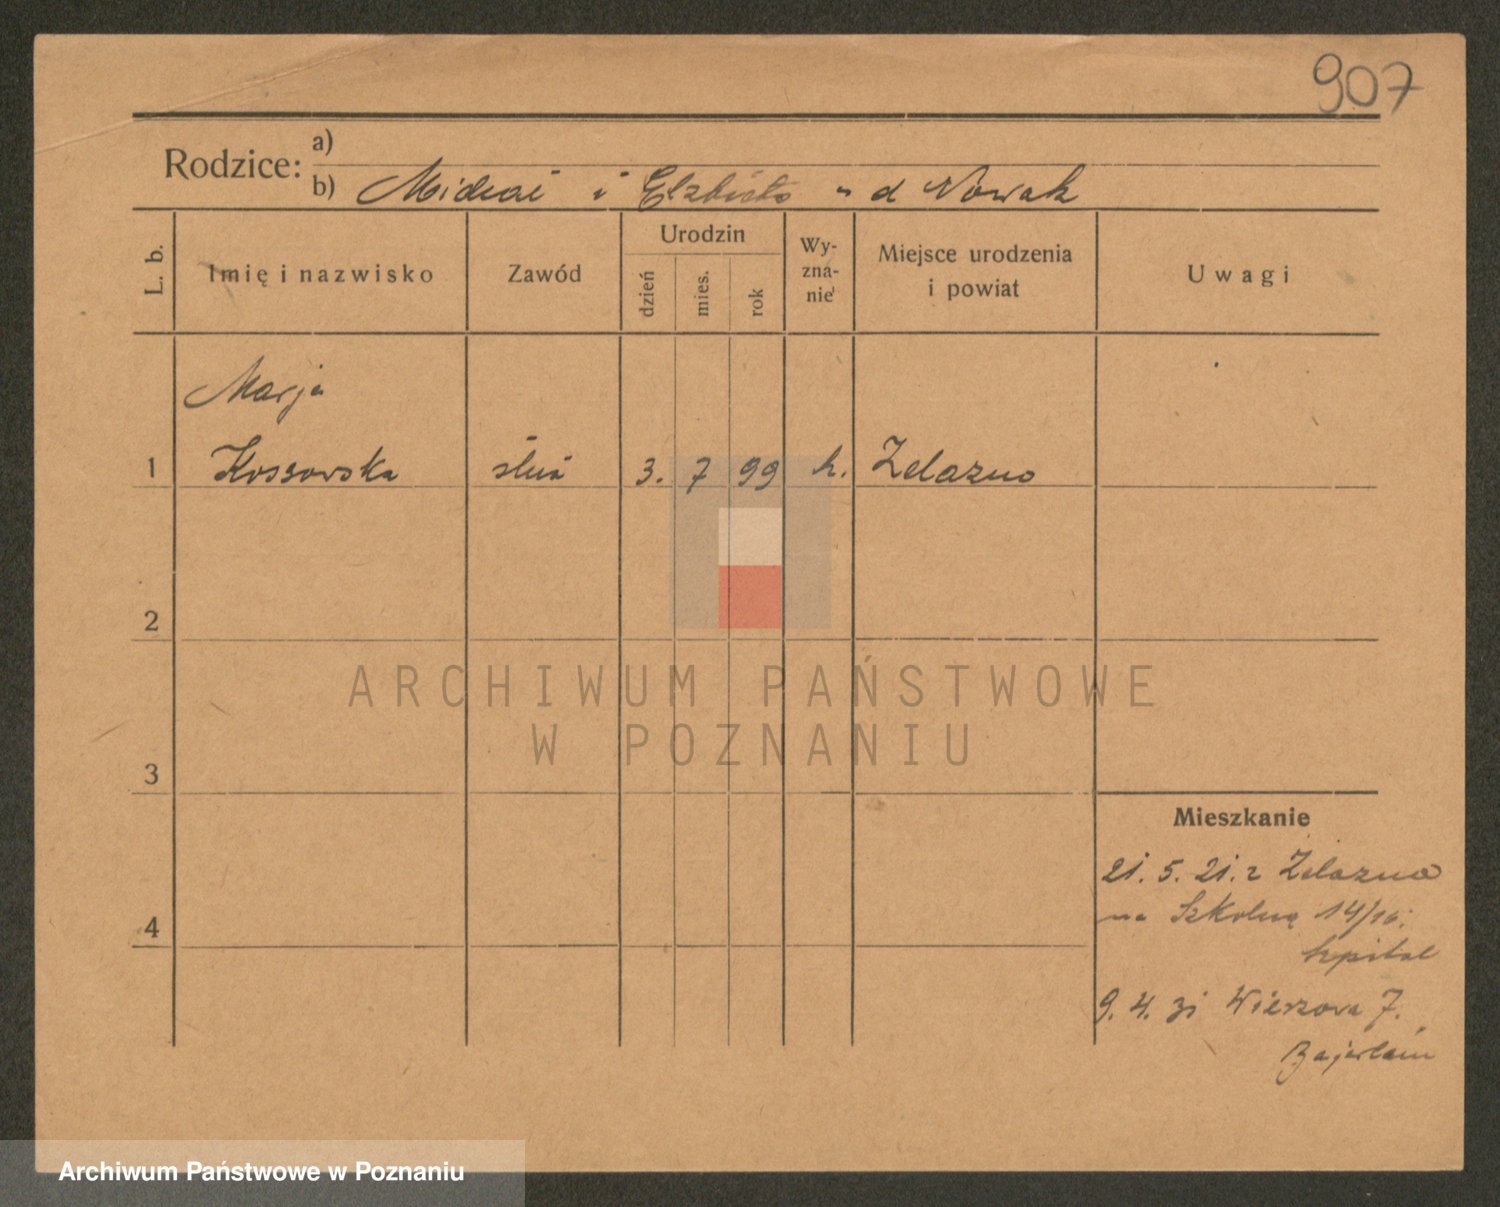 907
Rodzice: a)
b) Michał i Elżbieta z d Nowak
L. b.
Imię i nazwisko
Zawód
Urodzin
dzień
mies.
rok
Wy-
zna-
nie
Miejsce urodzenia
i powiat
Uwagi
Marja
1 Kossowska służ 3. 7 99 k. Żelazno
2
3
4
Mieszkanie
21. 5. 21. z Żelazna
na Szkolną 14/16.
szpital
9. 4. 31
7.
ARCHIWUM PAŃSTWOWE
W POZNANIU
Archiwum Państwowe w Poznaniu